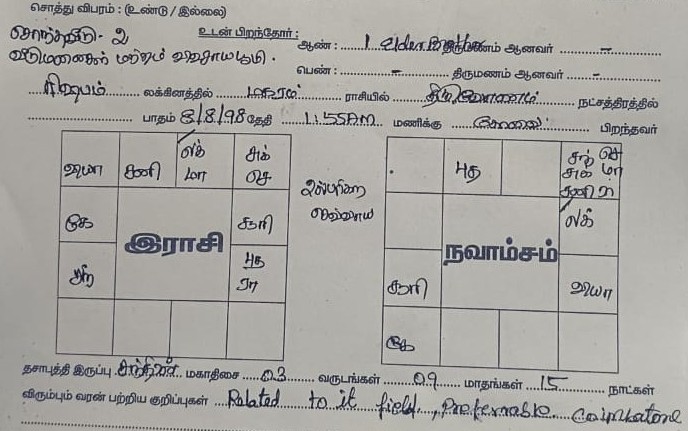 சொத்து விபரம் : (உண்டு / இல்லை)
சொந்தவீடு - 2 உடன் பிறந்தோர் : ஆண் : 1 elder திருமணம் ஆனவர் -
வீடுமனைகள் மற்றும் விவசாயபூமி. பெண் : - திருமணம் ஆனவர் -
ரிஷபம் லக்கினத்தில் மகரம் ராசியில் திருவோணம் நட்சத்திரத்தில்
பாதம் 8/8/98 தேதி 11:55 Am மணிக்கு பிறந்தவர்
வியா சனி லக் மா சுக் செ
கே சூரி
சந் புத ரா
இராசி
புத சந் செ சுக் மா சனி ரா
லக்
சூரி வியா
கே
நவாம்சம்
தசாபுத்தி இருப்பு சந்திரன் மகாதிசை 03 வருடங்கள் 09 மாதங்கள் 15 நாட்கள்
விரும்பும் வரன் பற்றிய குறிப்புகள் Related to it field, Preferrable Coimbatore